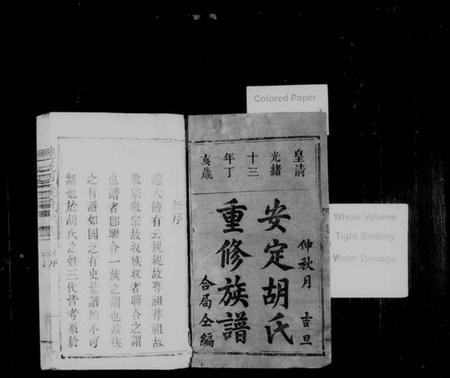 Colored Paper
Whole Volume
Tight Binding
Water Damage
皇清
光緒
十三
年丁
亥歲
仲秋月 吉旦
安定胡氏
重修族譜
合局仝編
譜序
禮大傳有云親親故尊祖尊祖故
敬宗敬宗故收族收者聯合之謂
也譜者即聯合一族之謂也故族
之有譜如國之有史甚譜所不可
無也於胡氏之姓三代皆考系於